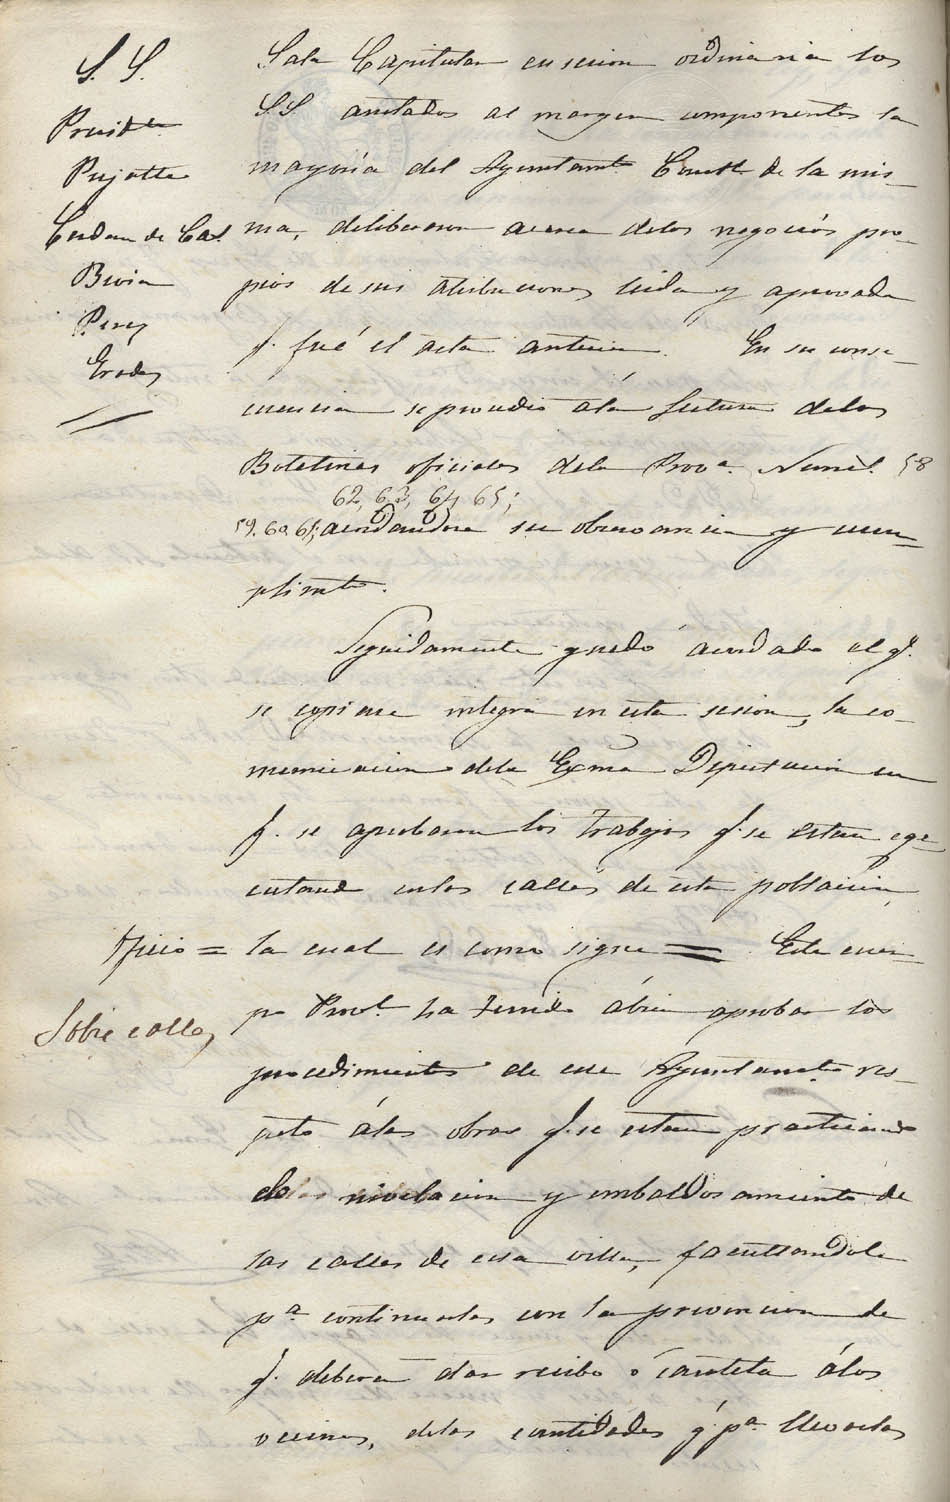 S. S.
Presidte
Pujalte
Cerdan de Cas.
Brovia
Perez
Erades
Sala Capitular en sesion ordinaria los
SS. anotados al margen componentes la
mayoria del Ayuntamto Constl de la mis-
ma, deliberaron acerca delos negocios pro-
pios de sus atribuciones leida y aprovada
q. fué el acta anterior. En su conse-
cuencia se procedió ála lectura delos
Boletines oficiales dela Prova. Nums. 58
62, 63, 64, 65;
59. 60. 61; acordandose su observancia y cum-
plimto.
Seguidamente quedó acordado el q.
se copiase integra en esta sesion, la co-
municacion dela Exma Diputacion en
q. se aprobaron los trabajos q. se estan ege-
cutando enlas calles de esta poblacion,
la cual es como sigue =
Oficio = Este cuer-
Sobre calles
po Provl. ha tenido ábien aprobar los
procedimientos de ese Ayuntamto res-
peto álas obras q. se estan practicando
de nivelacion y embaldosamiento de
las calles de esa villa, facultandole
pa. continuarlas con la prevencion de
q. deberá dar recibo ó cautela álos
vecinos, delas cantidades q. pa. llevarlas